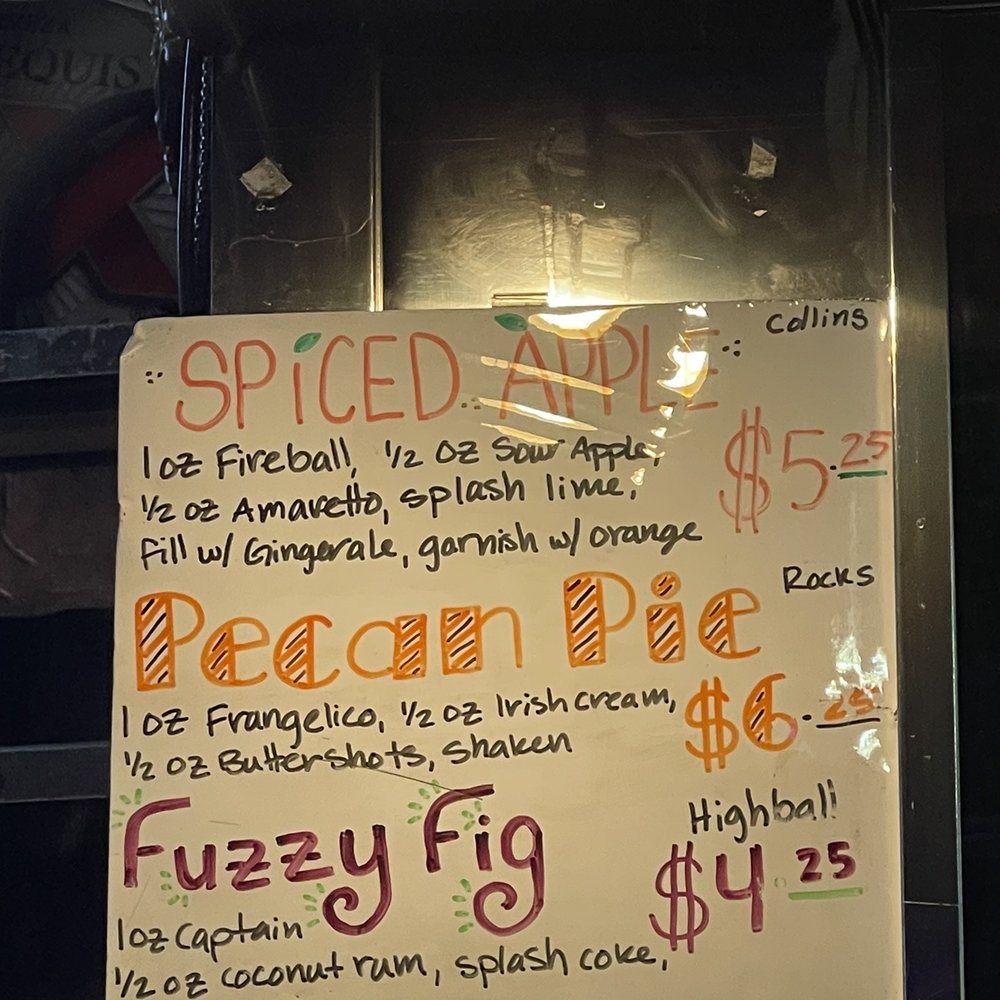 EQUIS
Collins
SPiCED APPLE
$5.25
1 oz Fireball, ½ oz Sour Apple,
½ oz Amaretto, splash lime,
Fill w/ Gingerale, garnish w/ orange
Rocks
Pecan Pie
$6.25
1 oz Frangelico, ½ oz Irish cream,
½ oz Buttershots, shaken
Highball
Fuzzy Fig
$4.25
1oz Captain
½ oz coconut rum, splash coke,